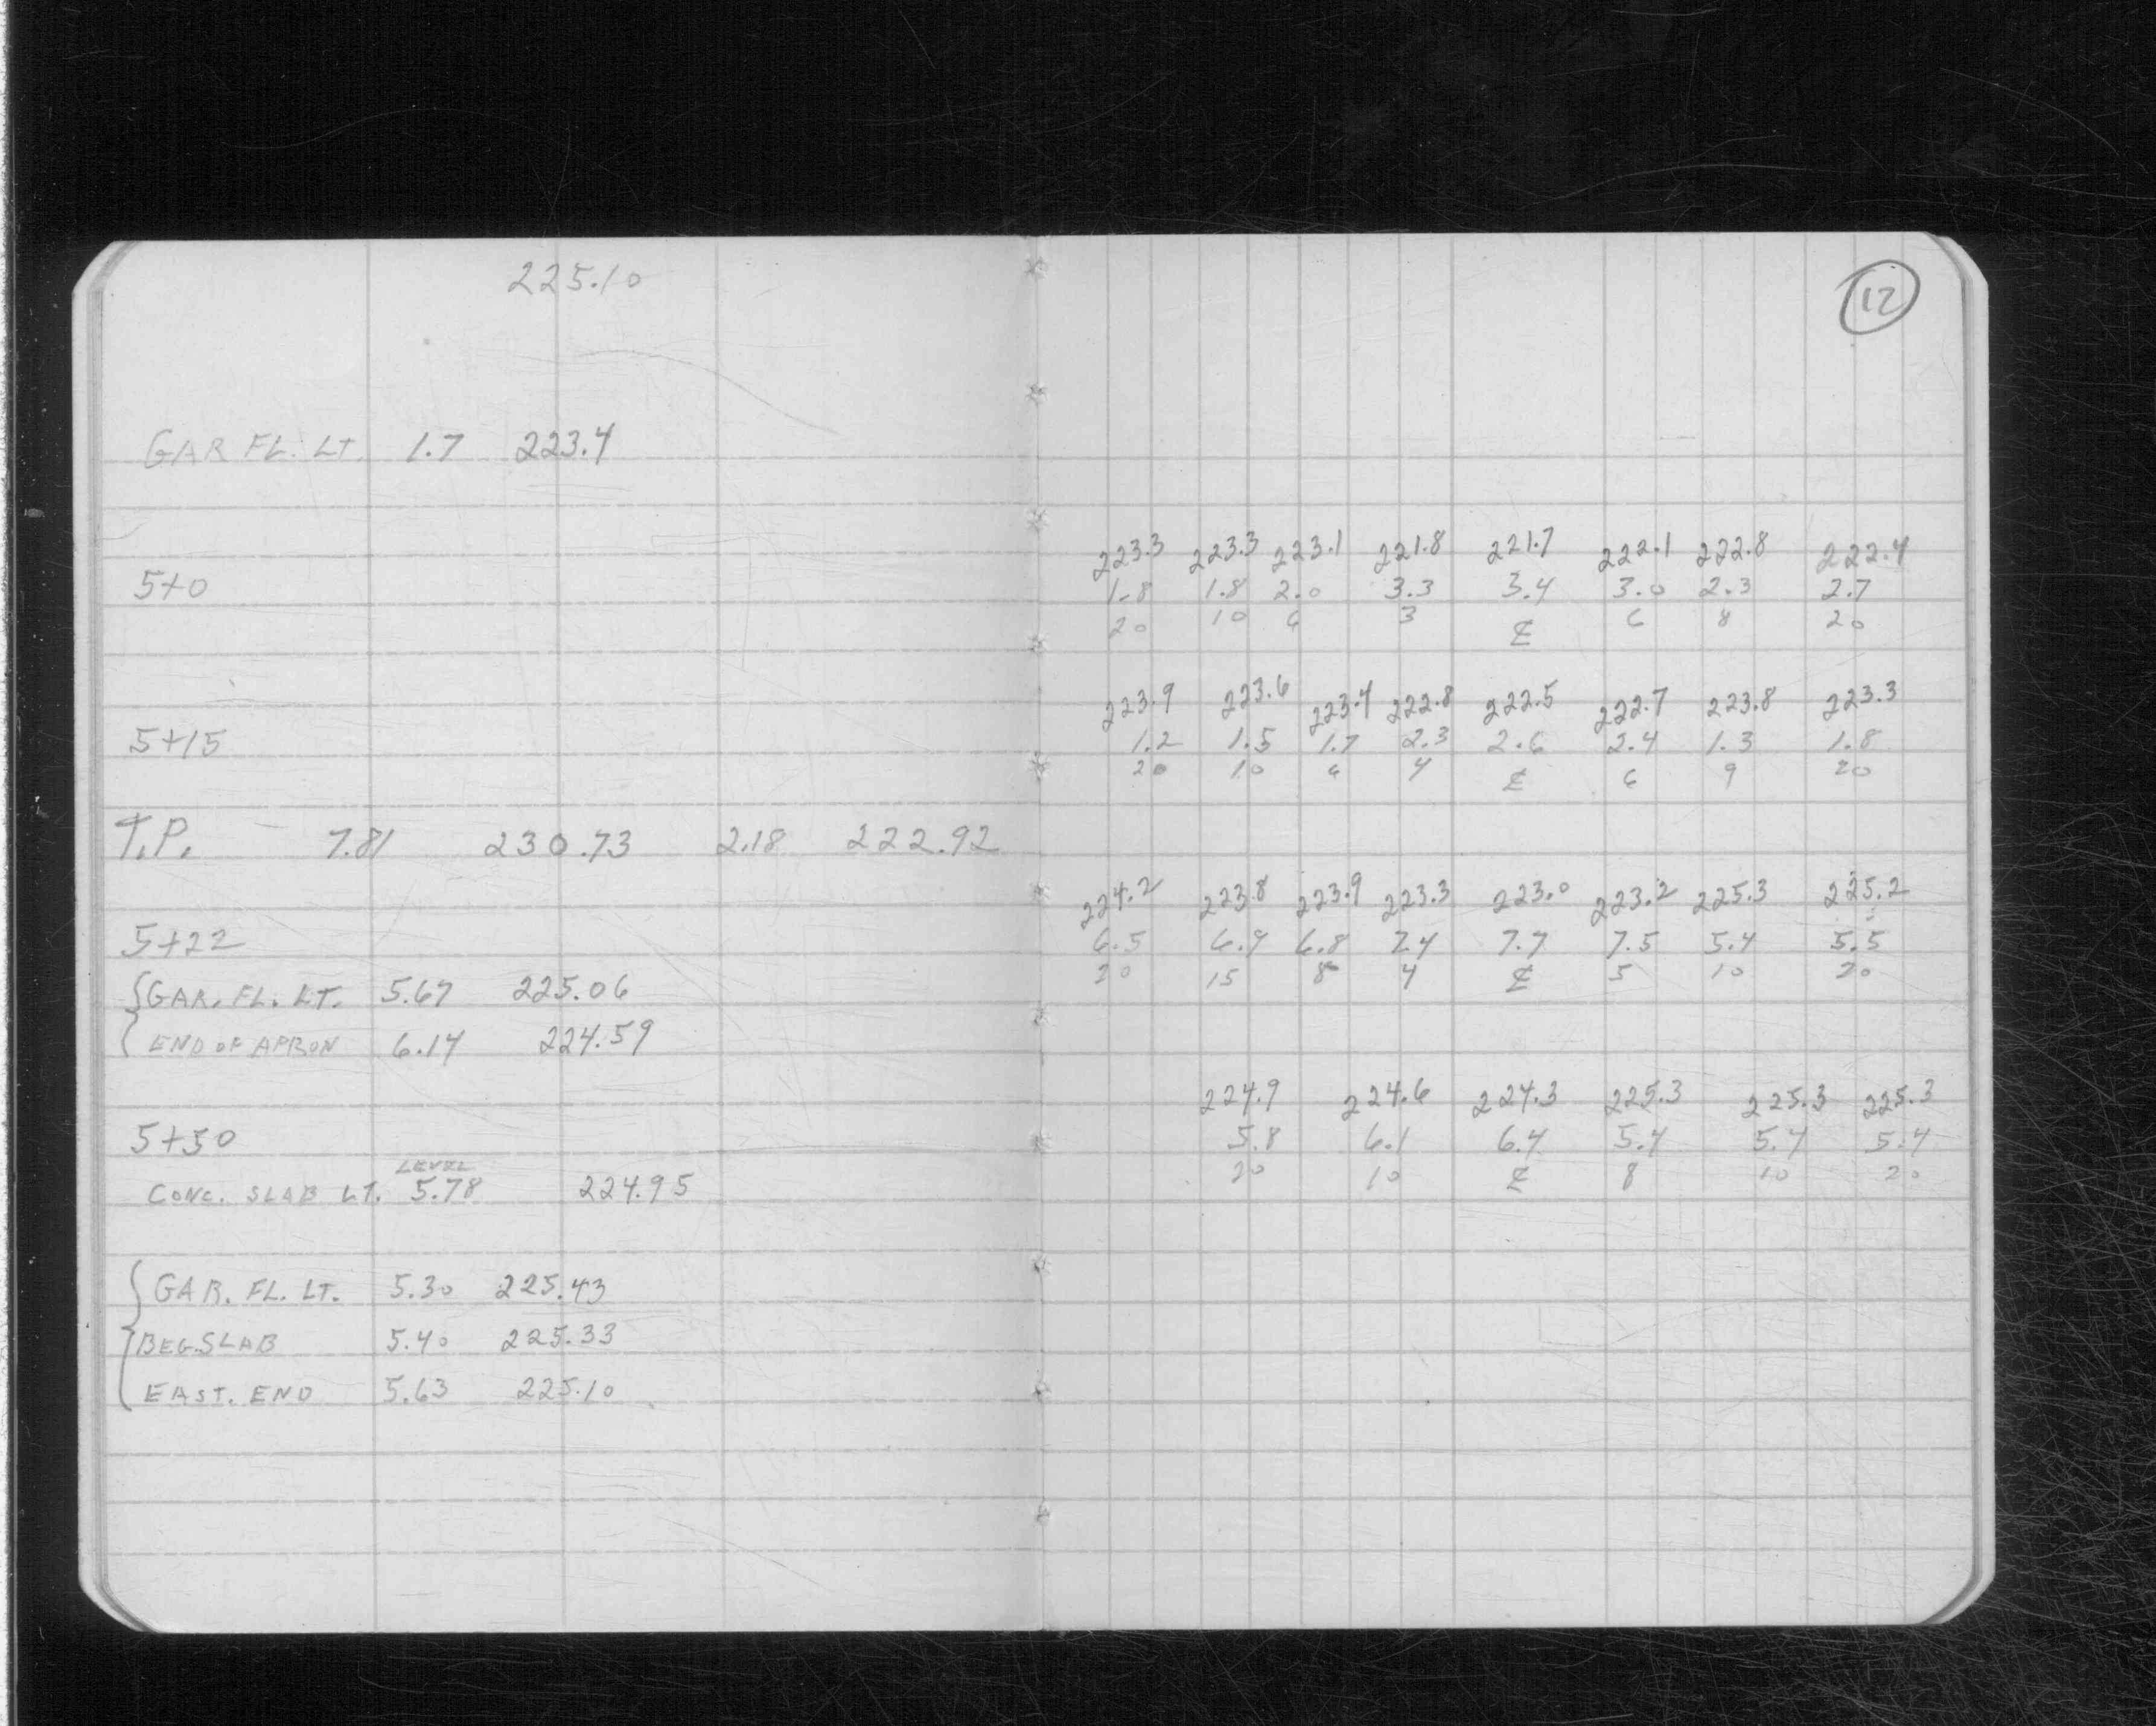 225.10
GAR FL. LT. 1.7 223.4
5+0
5+15
T.P. 7.81 230.73 2.18 222.92
5+22
GAR. FL. LT. 5.67 225.06
END OF APRON 6.14 224.59
5+50
LEVEL
CONC. SLAB LT. 5.78 224.95
GAR. FL. LT. 5.30 225.43
BEG. SLAB 5.40 225.33
EAST. END 5.63 225.10
12
223.3 223.3 223.1 221.8 221.7 222.1 222.8 222.4
1.8 1.8 2.0 3.3 3.4 3.0 2.3 2.7
20 10 6 3 ℄ 6 8 20
223.9 223.6 223.4 222.8 222.5 222.7 223.8 223.3
1.2 1.5 1.7 2.3 2.6 2.4 1.3 1.8
20 10 6 4 ℄ 6 9 20
224.2 223.8 223.9 223.3 223.0 223.2 225.3 225.2
6.5 6.9 6.8 7.4 7.7 7.5 5.4 5.5
20 15 8 4 ℄ 5 10 20
224.9 224.6 224.3 225.3 225.3 225.3
5.8 6.1 6.4 5.4 5.4 5.4
20 10 ℄ 8 10 20